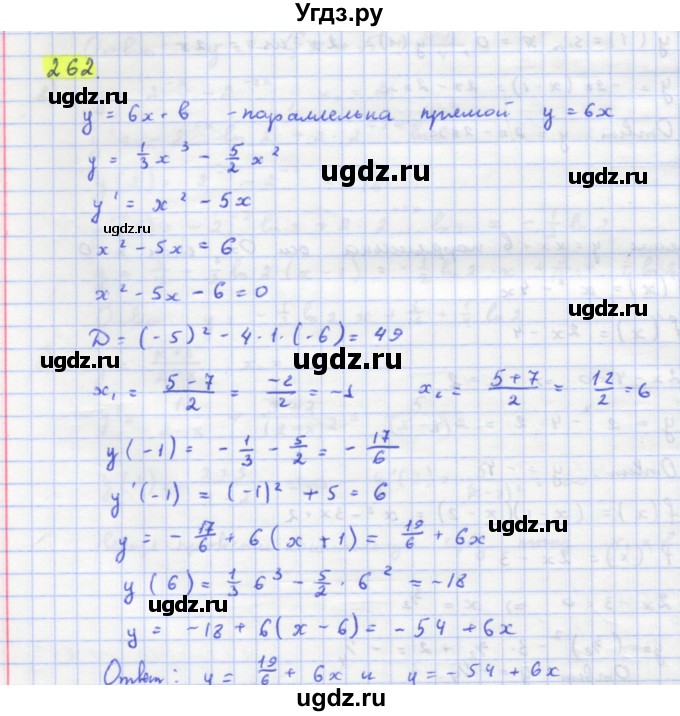 Угдз.ру
262.
ugdz.ru
y = 6x + b - параллельна прямой y = 6x
y = 1/3 x³ - 5/2 x²
ugdz.ru ugdz.ru
y' = x² - 5x
ugdz.ru
x² - 5x = 6
x² - 5x - 6 = 0
ugdz.ru
D = (-5)² - 4·1·(-6) = 49
ugdz.ru ugdz.ru
x₁ = (5-7)/2 = -2/2 = -1 x₂ = (5+7)/2 = 12/2 = 6
y(-1) = -1/3 - 5/2 = -17/6
ugdz.ru
y'(-1) = (-1)² + 5 = 6
ugdz.ru
y = -17/6 + 6(x+1) = 19/6 + 6x
ugdz.ru
y(6) = 1/3 6³ - 5/2 · 6² = -18
ugdz.ru
y = -18 + 6(x-6) = -54 + 6x
ugdz.ru
Ответ: y = 19/6 + 6x и y = -54 + 6x
ugdz.ru
ugdz.ru